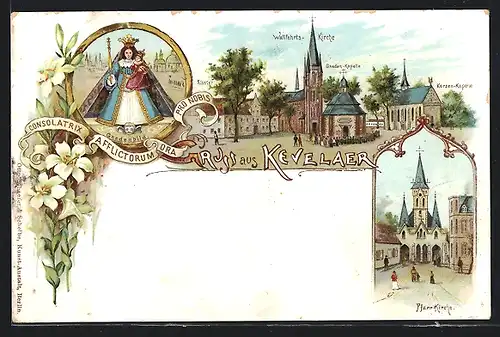 CONSOLATRIX AFFLICTORUM ORA PRO NOBIS
Gnadenbild
Wallfahrts-Kirche
Gnaden-Kapelle
Kerzen-Kapelle
GRUSS aus KEVELAER
Pfarr-Kirche.
Kunst-Anstalt, Berlin.